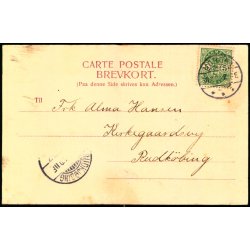 CARTE POSTALE
BREVKORT.
(Paa denne Side skrives kun Adressen.)
Til
Frk Alma Hansen
Kirkegaardsvej
Rudkøbing